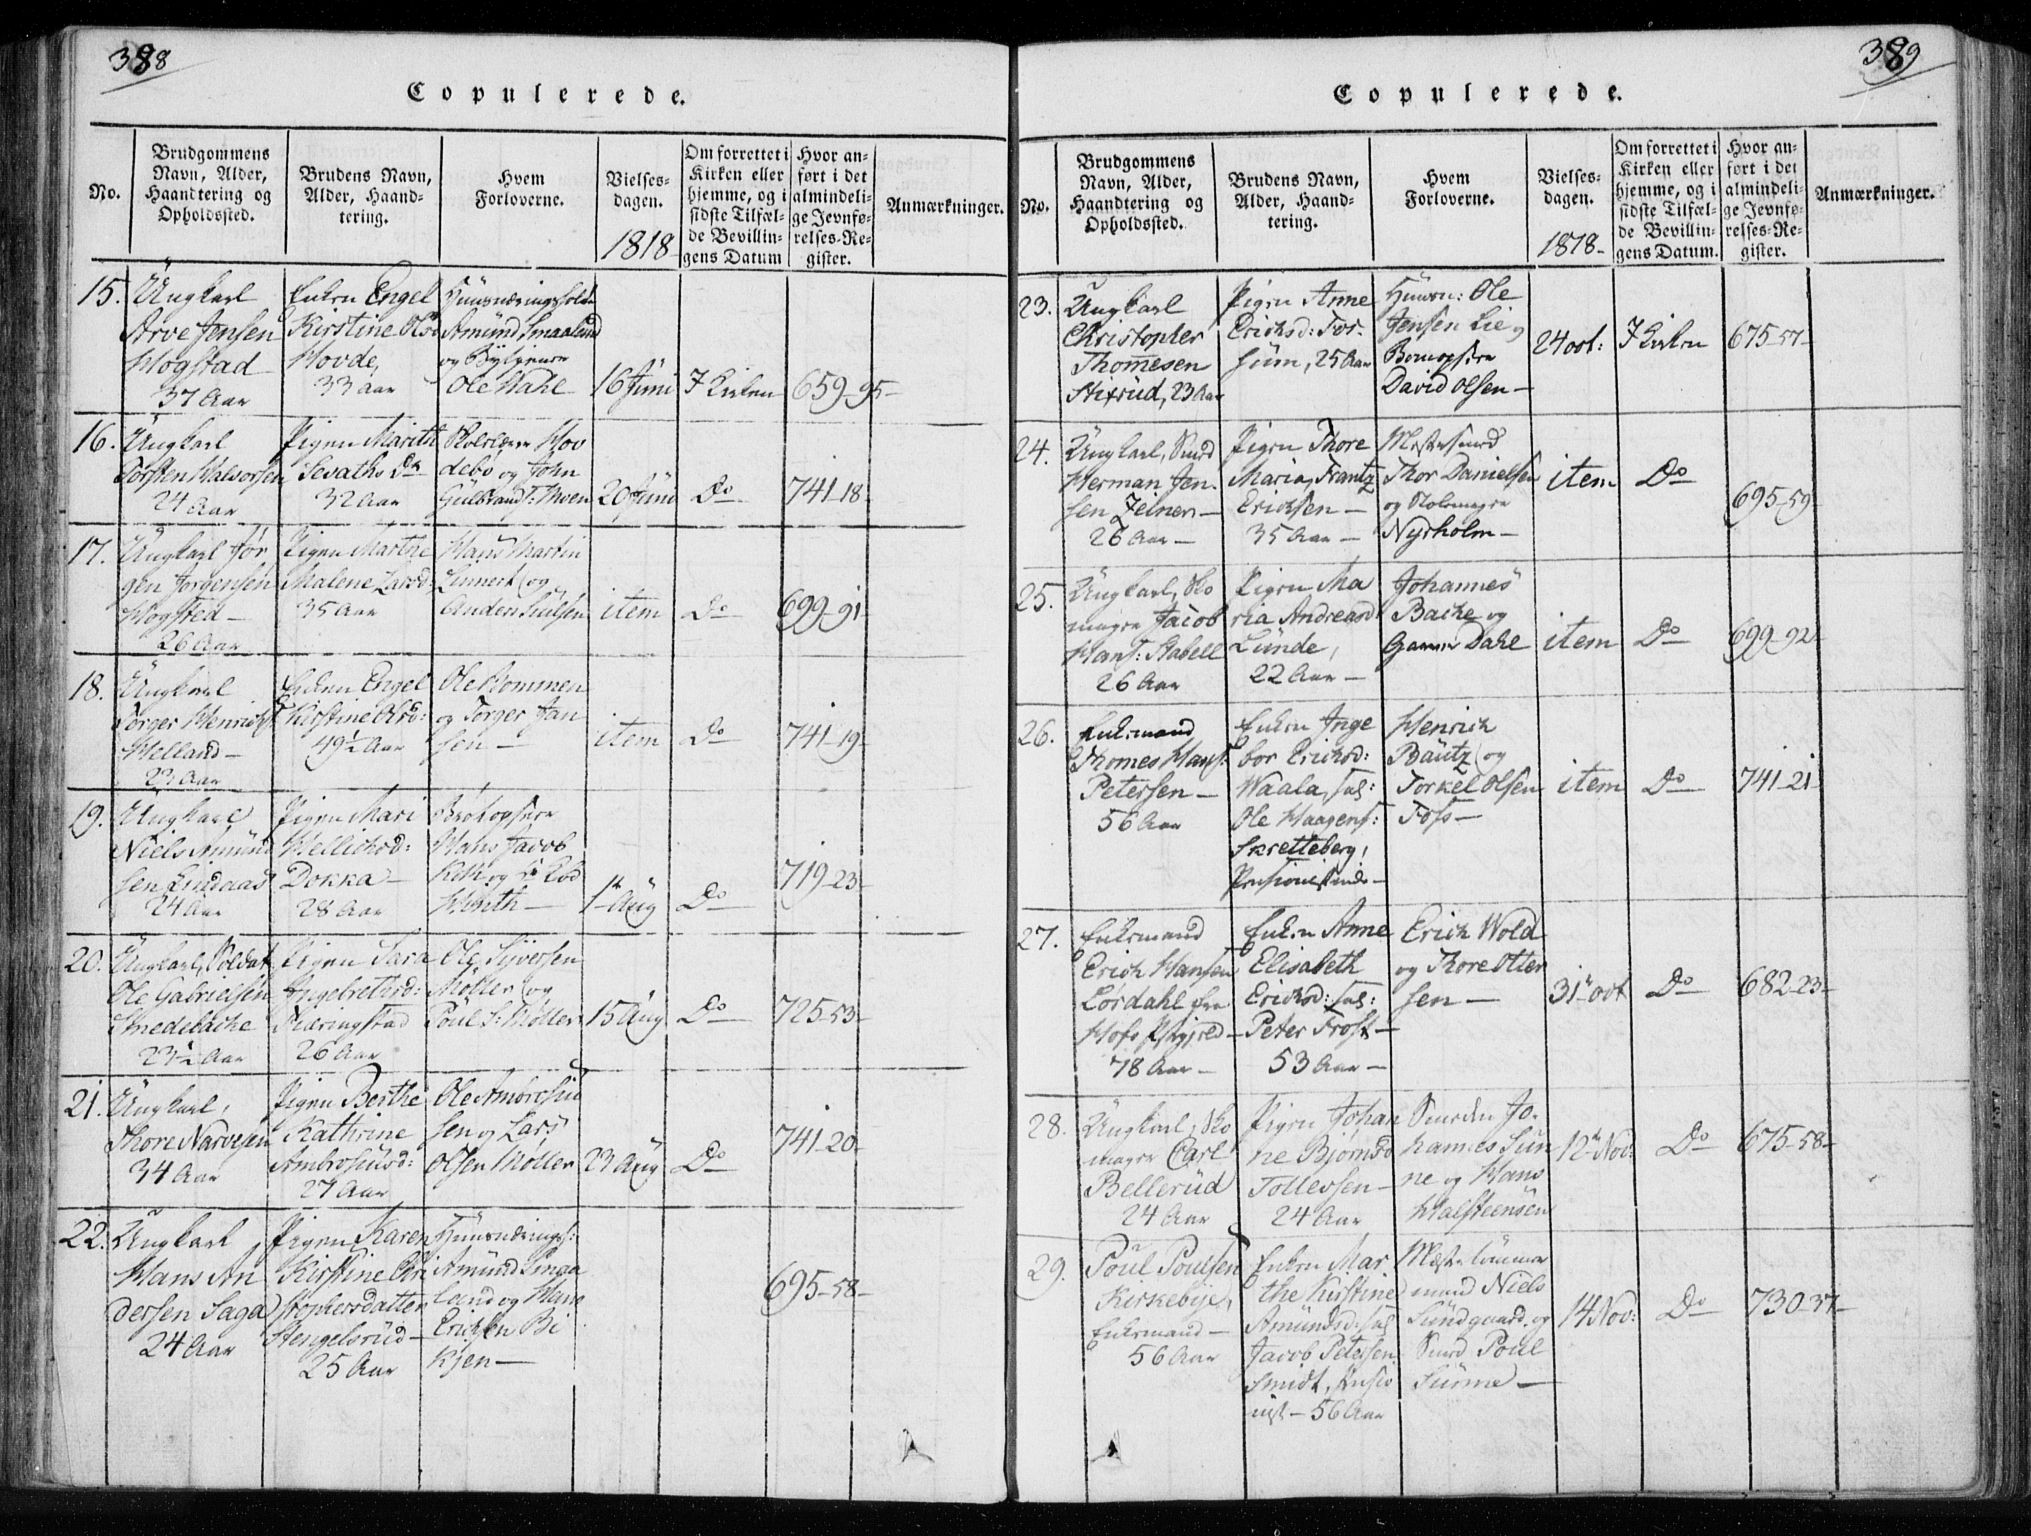 388
Copulerede.
No.
Brudgommens
Navn, Alder,
Haandtering og
Opholdssted.
Brudens Navn,
Alder, Haand-
tering.
Hvem
Forloverne.
Vielses-
dagen.
1818
Om forrettet i
Kirken eller
hjemme, og i
sidste Tilfæl-
de Bevillin-
gens Datum
Hvor an-
ført i det
almindeli-
ge Jevnfø-
relses-Re-
gister.
Anmærkninger.
15.
Ungkarl
Arve Jensen
Hogstad
37 Aar
Enken Engel
Kirstine
Hovde,
33 aar
Amund Smaaland
og
Ole Dahl
16 Juni
I Kirken
659-95-
16.
Ungkarl
Torsten Halvorsen
24 Aar
Pigen Marith
32 Aar
Hov
debo og John
Gulbrand:
20 Juni
Do
741-18-
17.
Ungkarl Jør
gen Jørgensen
Hogsted-
26 Aar
Pigen Marthe
Malene Larsd:
35 Aar
Hans Martin
Linnert og
item
Do
699-91
18.
Ungkarl
Torger Henrichs:
Helland-
23 Aar
Enken Engel
Kirstine Olsd:
49½ Aar
Ole Kommen
og Torger Jan
sen-
item
Do
741-19-
19.
Ungkarl
Niels Amund
sen
24 Aar
Pigen Mari
Hellichsd:
Dokka-
28 Aar
Hans Jacob
1 Aug
Do
719-23-
20.
Ungkarl, Soldat
Ole Gabrielsen
Smedebache
23½ Aar
Pigen Sara
Ingebrethsd:
26 Aar
Ole Syversen
Møller og
Poul S: Møller
15 Aug
Do
725-53-
21.
Ungkarl,
Thore Narvesen
34 Aar
Pigen Berthe
Kathrine
Ambrosiusd:
27 Aar
Ole Ambrosiu
sen og Lars
Olsen Møller
23 Aug
Do
741-20-
22.
Ungkarl
Hans An
dersen Saga
24 Aar
Pigen Karen
Kirstine Chri
stophersdatter
Stengelsrud-
25 Aar
Amund Smaa
land og Hans
Erichsen Bi
kjen-
695-58-
389
Copulerede.
No.
Brudgommens
Navn, Alder,
Haandtering og
Opholdssted.
Brudens Navn,
Alder, Haand-
tering.
Hvem
Forloverne.
Vielses-
dagen.
1818-
Om forrettet i
Kirken eller
hjemme, og i
sidste Tilfæl-
de Bevillin-
gens Datum.
Hvor an-
ført i det
almindeli-
ge Jevnfø-
relses-Re-
gister.
Anmærkninger.
23.
Ungkarl
Christopher
Thommesen
Stixrud, 23 Aar
Pigen Anne
Erichsd: For-
sum, 25 Aar
Ole
Jensen Lie og
David Olsen-
24 oct:
I Kirken
675-57-
24.
Ungkarl, Smed
Herman Jen-
sen Zeiner-
26 Aar-
Pigen Thore
Maria Frantz
Erichsen-
35 Aar-
Mestersmed
Thor Danielsen
og
Nyrholm-
item
Do
695-59-
25.
Ungkarl, Sko
mager Jacob
Hans: Stabell
26 Aar
Pigen Ma
ria Andreasd
Lunde,
22 Aar-
Johannes
Bache og
Dahl
item
Do
699-92-
26.
Enkemand
Thomes Hans:
Petersen-
56 Aar
Enken Inge
bor Erichsd:
Waala, sal:
Ole Haagens:
Skretteberg,
Henrich
Bautz og
Torkel Olsen
Foss-
item
Do
741-21-
27.
Enkemand
Erich Hansen
Lørdahl fra
78 Aar-
Enken Anne
Elisabeth
Erichsd: sal:
Peter Frost-
53 Aar-
Erich Wold
og Thore Otter
sen-
31 oct
Do
682-23-
28.
Ungkarl, Sko
mager Carl
Bellerud
24 Aar
Pigen Johan
ne Bjørnsd
Tollefsen-
24 Aar
Smeden Jo-
hannes Sun
ne og Hans
Halsteensen
12 Nov:
Do
675-58-
29.
Poul Poulsen
Kirkebye,
Enkemand-
56 Aar
Enken Mar
the Kirstine
Amundsd: sal
Jacob Petersen
Smidt,
56 Aar
Mestertømmer
mand Niels
Sundgaard og
Smed Poul
Sunne-
14 Nov:
Do
730-37-